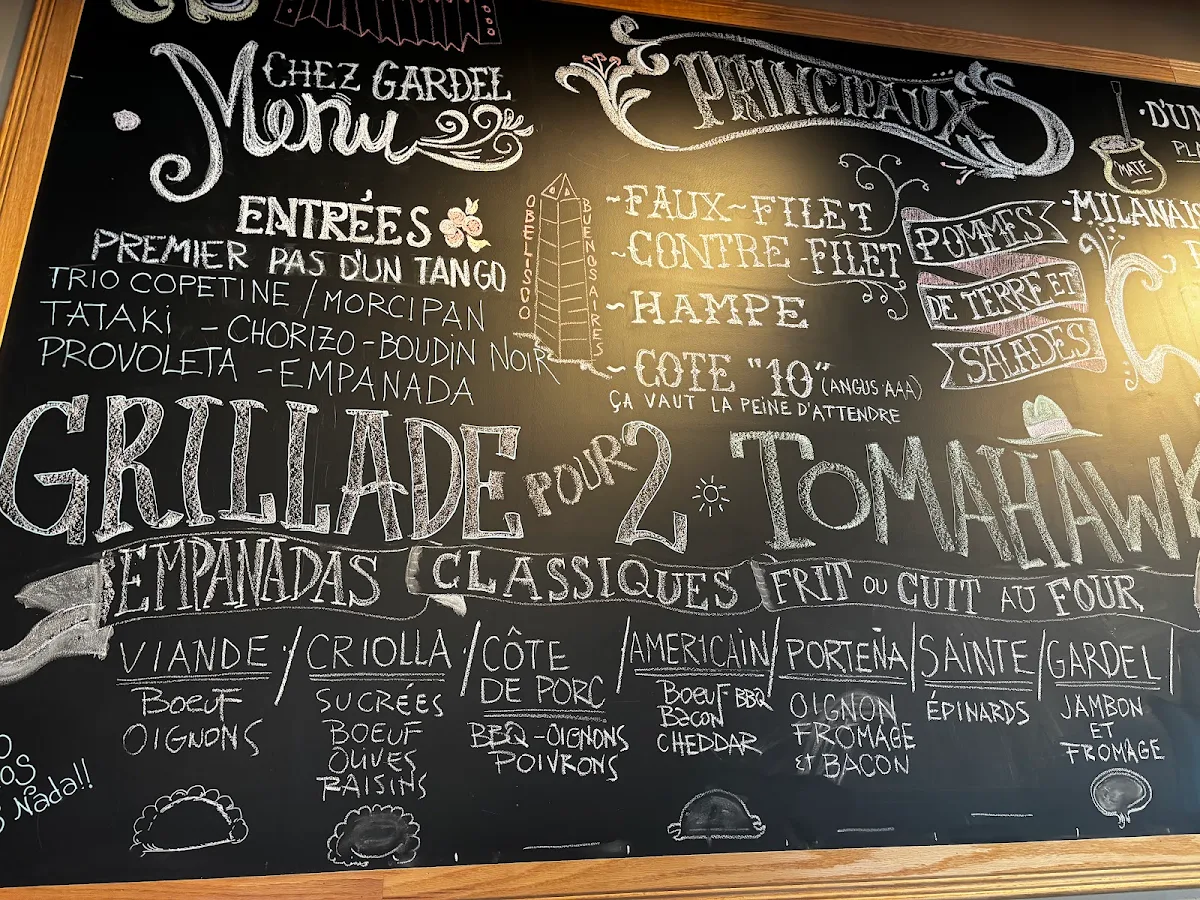 CHEZ GARDEL
Menu
ENTRÉES
PREMIER PAS D'UN TANGO
TRIO COPETINE / MORCIPAN
TATAKi - CHORIZO - BOUDIN NOIR
PROVOLETA - EMPANADA
OBELISCO
BUENOS AIRES
PRINCIPAUX
~FAUX~FILET
~CONTRE-FILET
~HAMPE
~COTE "10" (ANGUS AAA)
ÇA VAUT LA PEINE D'ATTENDRE
POMMES
DE TERRE ET
SALADES
MATE
·D'UN
MILANAIS
GRILLADE POUR 2
TOMAHAWK
EMPANADAS CLASSIQUES FRIT OU CUIT AU FOUR
VIANDE
BOEUF
OIGNONS
CRIOLLA
SUCRÉES
BOEUF
OLIVES
RAISINS
CÔTE
DE PORC
BBQ-OIGNONS
POIVRONS
AMERICAIN
BOEUF BBQ
BACON
CHEDDAR
PORTEÑA
OIGNON
FROMAGE
ET BACON
SAINTE
ÉPINARDS
GARDEL
JAMBON
ET
FROMAGE
Nada!!